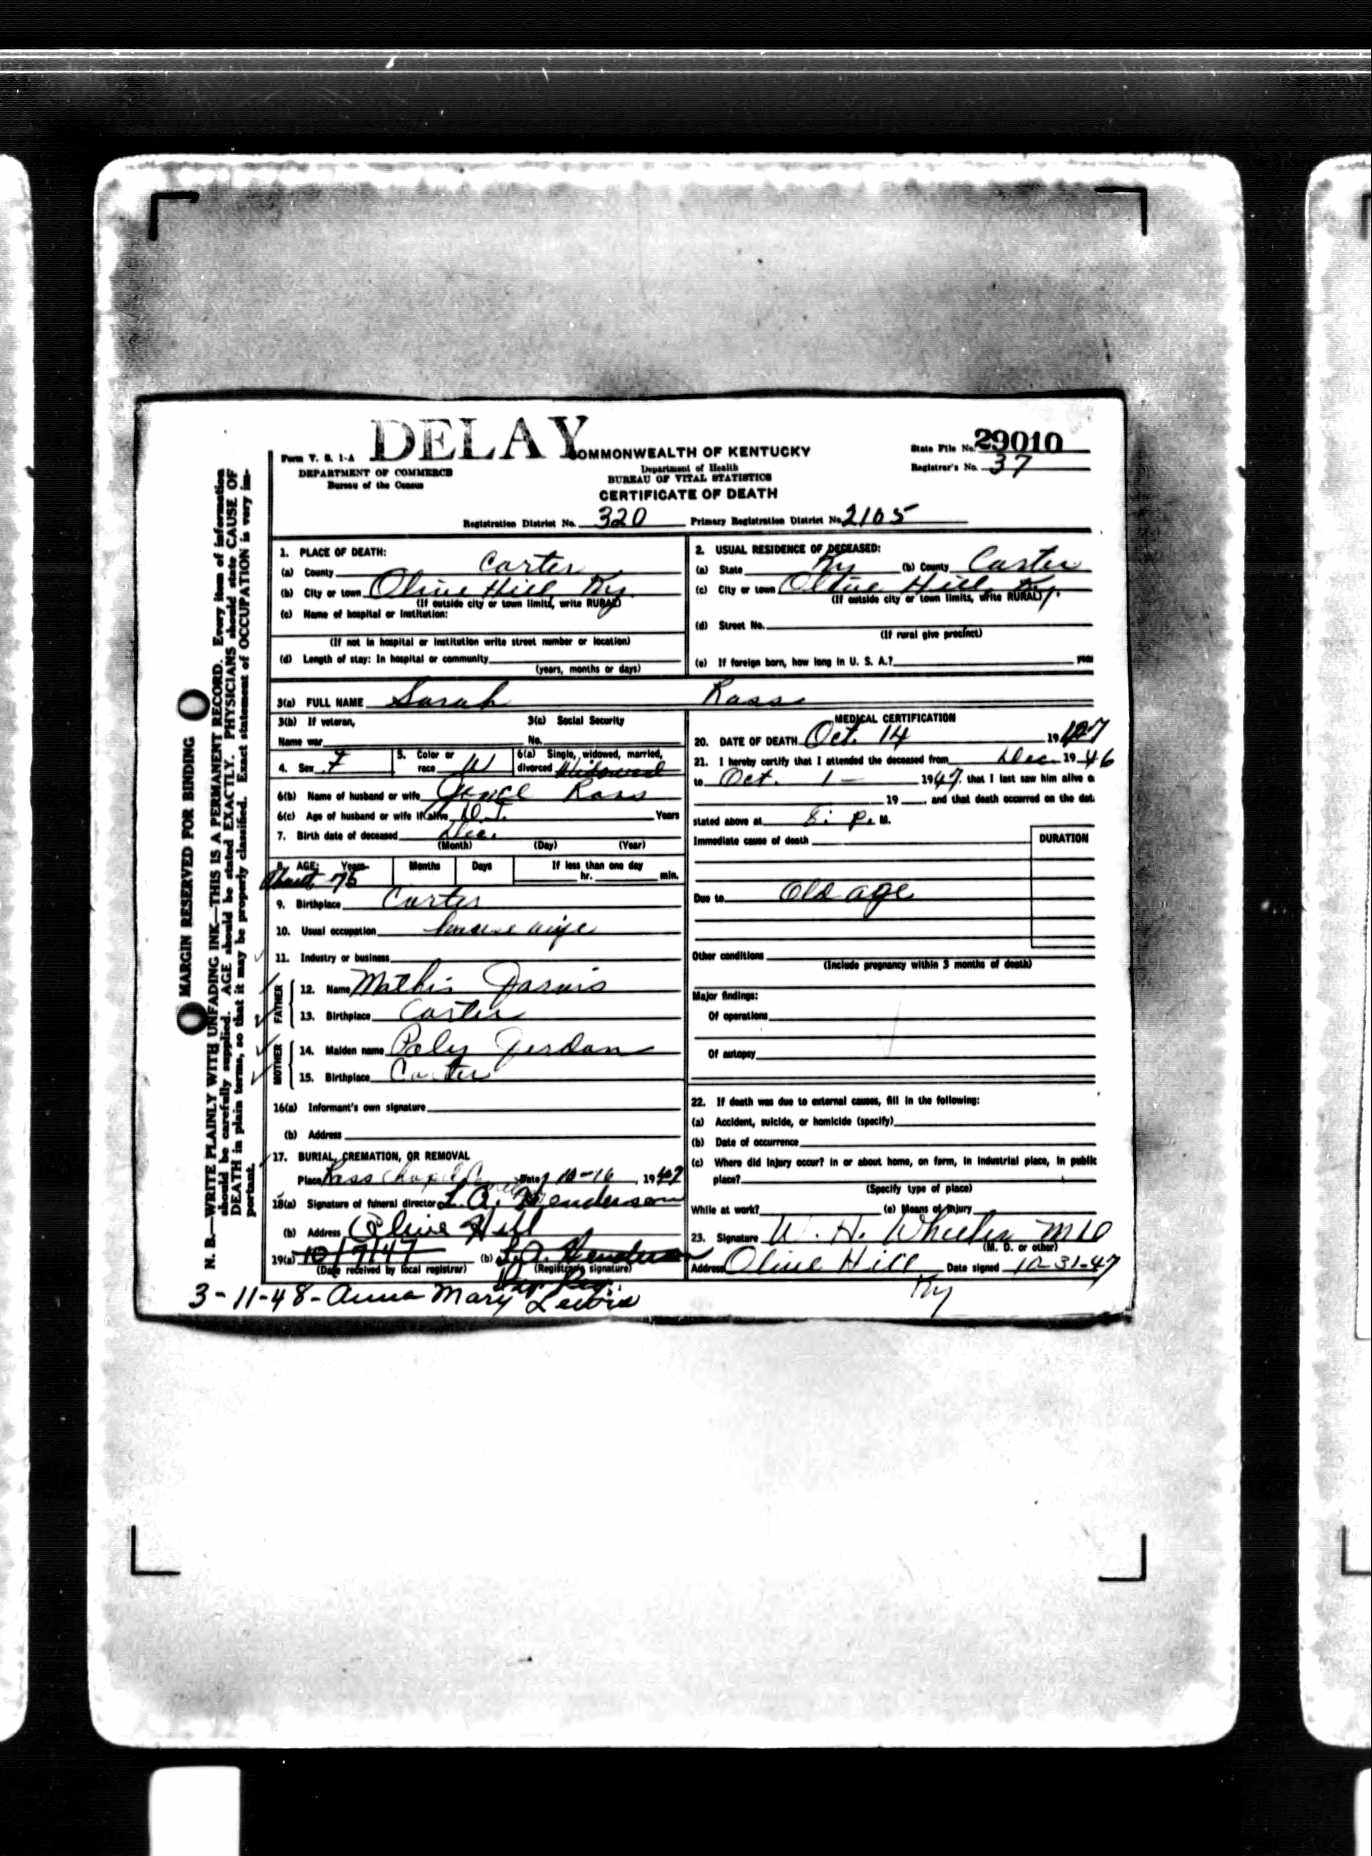 DELAY
Form V. S. 1-A
COMMONWEALTH OF KENTUCKY
State File No. 29010
DEPARTMENT OF COMMERCE
Bureau of the Census
Department of Health
BUREAU OF VITAL STATISTICS
Registrar's No. 37
CERTIFICATE OF DEATH
Registration District No. 320 Primary Registration District No. 2105
MARGIN RESERVED FOR BINDING
N. B.—WRITE PLAINLY WITH UNFADING INK—THIS IS A PERMANENT RECORD. Every item of information
should be carefully supplied. AGE should be stated EXACTLY. PHYSICIANS should state CAUSE OF
DEATH in plain terms, so that it may be properly classified. Exact statement of OCCUPATION is very im-
portant.
1. PLACE OF DEATH:
(a) County Carter
(b) City or town Olive Hill Ky
(If outside city or town limits, write RURAL)
(c) Name of hospital or institution:
(If not in hospital or institution write street number or location)
(d) Length of stay: In hospital or community
(years, months or days)
2. USUAL RESIDENCE OF DECEASED:
(a) State Ky (b) County Carter
(c) City or town Olive Hill Ky.
(If outside city or town limits, write RURAL)
(d) Street No.
(If rural give precinct)
(e) If foreign born, how long in U. S. A.? year
3(a) FULL NAME Sarah Ross
3(b) If veteran,
Name war
3(c) Social Security
No.
4. Sex F
5. Color or
race W
6(a) Single, widowed, married,
divorced Widowed
6(b) Name of husband or wife Ross
6(c) Age of husband or wife if alive Years
7. Birth date of deceased Dec.
(Month) (Day) (Year)
8. AGE: Years Months Days If less than one day
About 75 hr. min.
9. Birthplace Carter
10. Usual occupation house wife
11. Industry or business
FATHER
12. Name Mathis Jarvis
13. Birthplace Carter
MOTHER
14. Maiden name Jordan
15. Birthplace Carter
16(a) Informant's own signature
(b) Address
17. BURIAL, CREMATION, OR REMOVAL
Place Ross Chapel Date 10-16, 1947
18(a) Signature of funeral director L. A. Henderson
(b) Address Olive Hill
19(a) 10/9/47 (b) L. A. Henderson
(Date received by local registrar) (Registrar's signature)
MEDICAL CERTIFICATION
20. DATE OF DEATH Oct. 14 1947
21. I hereby certify that I attended the deceased from Dec. 1946
to Oct. 1— 1947. that I last saw him alive o
19 , and that death occurred on the dat
stated above at 8: P. M.
Immediate cause of death
DURATION
Due to Old age
Other conditions
(Include pregnancy within 3 months of death)
Major findings:
Of operations
Of autopsy
22. If death was due to external causes, fill in the following:
(a) Accident, suicide, or homicide (specify)
(b) Date of occurrence
(c) Where did injury occur? in or about home, on farm, in industrial place, in public
place?
(Specify type of place)
While at work? (e) Means of injury
23. Signature W. H. Wheeler M D
(M. D. or other)
Address Olive Hill Date signed 10-31-47
Ky
3-11-48- Anna Mary Lewis